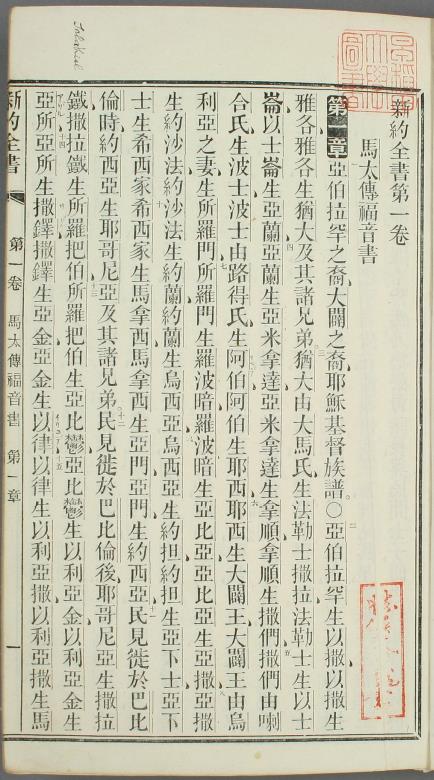 新約全書第一卷
馬太傳福音書
第一章亞伯拉罕之裔大闢之裔耶穌基督族譜。〇亞伯拉罕生以撒以撒生
雅各雅各生猶大及其諸兄弟猶大由大馬氏生法勒士撒拉法勒士生以士
崙以士崙生亞蘭亞蘭生亞米拿達亞米拿達生拿順拿順生撒們撒們由喇
合氏生波士波士由路得氏生阿伯阿伯生耶西耶西生大闢王大闢王由烏
利亞之妻生所羅門所羅門生羅波暗羅波暗生亞比亞亞比亞生亞撒亞撒
生約沙法約沙法生約蘭約蘭生烏西亞烏西亞生約担約担生亞下士亞下
士生希西家希西家生馬拿西馬拿西生亞門亞門生約西亞民見徙於巴比
倫時約西亞生耶哥尼亞及其諸兄弟民見徙於巴比倫後耶哥尼亞生撒拉
鐵撒拉鐵生所羅把伯所羅把伯生亞比鬱亞比鬱生以利亞金以利亞金生
亞所亞所生撒鐸撒鐸生亞金亞金生以律以律生以利亞撒以利亞撒生馬
新約全書
第一卷 馬太傳福音書 第一章
一